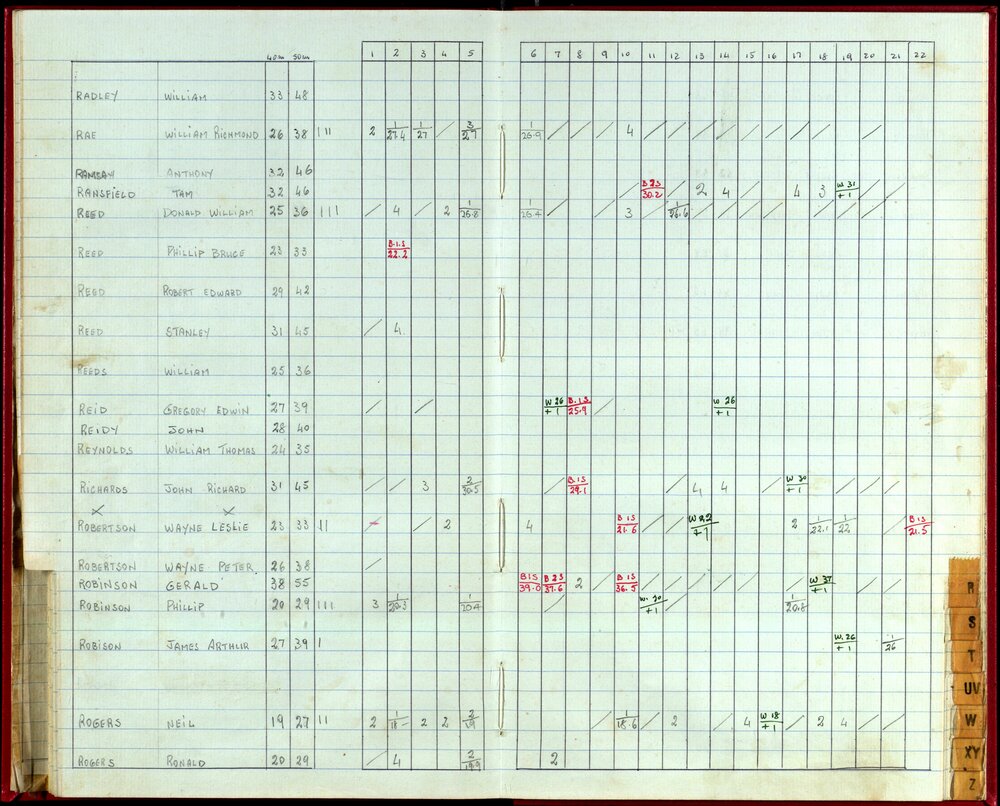 40m 50m 1 2 3 4 5 6 7 8 9 10 11 12 13 14 15 16 17 18 19 20 21 22
RADLEY WILLIAM 33 48
RAE WILLIAM RICHMOND 26 38 III 2 1/27.4 1/27 / 3/27 1/26.9 / / / 4 / / / / / / / / / /
RAMSAY ANTHONY 32 46
RANSFIELD TAM 32 46 / B 2S/30.2 / 2 4 / 4 3 W 31/+1 / /
REED DONALD WILLIAM 25 36 III / 4 / 2 1/26.8 1/26.4 / / 3 / 1/26.6 / / / / / / / /
REED PHILLIP BRUCE 23 33 B.1.S/22.2
REED ROBERT EDWARD 29 42
REED STANLEY 31 45 / 4
REEDS WILLIAM 25 36
REID GREGORY EDWIN 27 39 / / W 26/+1 B.1S/25.9 / W 26/+1
REIDY JOHN 28 40
REYNOLDS WILLIAM THOMAS 24 35
RICHARDS JOHN RICHARD 31 45 / / 3 2/30.5 / B 1S/29.1 / 4 4 / W 30/+1 / / /
X X
ROBERTSON WAYNE LESLIE 23 33 II / / 2 4 B 1S/21.6 / / W 22/+1 2 1/22.1 1/22 / B 1S/21.5
ROBERTSON WAYNE PETER 26 38 /
ROBINSON GERALD 38 55 B1S/39.0 B 2S/37.6 2 / B 1S/36.5 / / / / / / W 37/+1 / /
ROBINSON PHILLIP 20 29 III 3 1/20.3 1/20.4 / W. 20/+1 / 1/20.8 /
ROBISON JAMES ARTHUR 27 39 I W. 26/+1 1/26
ROGERS NEIL 19 27 II 2 1/18 2 2 2/19 / 1/18.6 / 2 / 4 W 18/+1 / 2 4 / /
ROGERS RONALD 20 29 / 4 2/19.9 2
R
S
T
UV
W
XY
Z